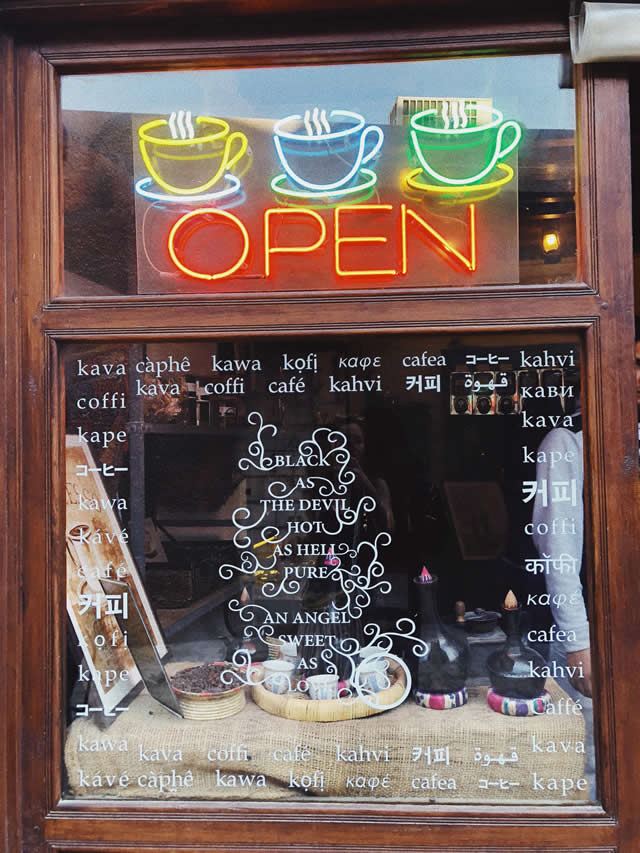 OPEN
kava càphê kawa kọfị καφε cafea コーヒー kahvi
kava coffi café kahvi 커피 قهوة
coffi
kape
コーヒー
kawa
kávé
café
커피
kofi
kape
コーヒー
BLACK
AS
THE DEVIL
HOT
AS HELL
PURE
AN ANGEL
SWEET
AS
кави
kava
kape
커피
coffi
कॉफी
καφε
cafea
kahvi
caffé
kawa kava coffi café kahvi 커피 قهوة kava
kávé càphê kawa kọfị καφε cafea コーヒー kape